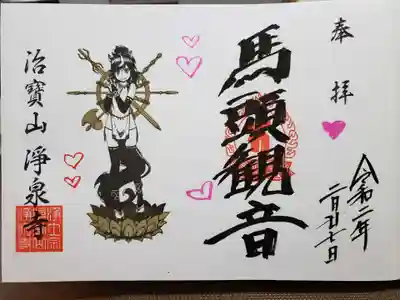 奉拝
令和二年
二月廿七日
馬頭観音
治寳山淨泉寺